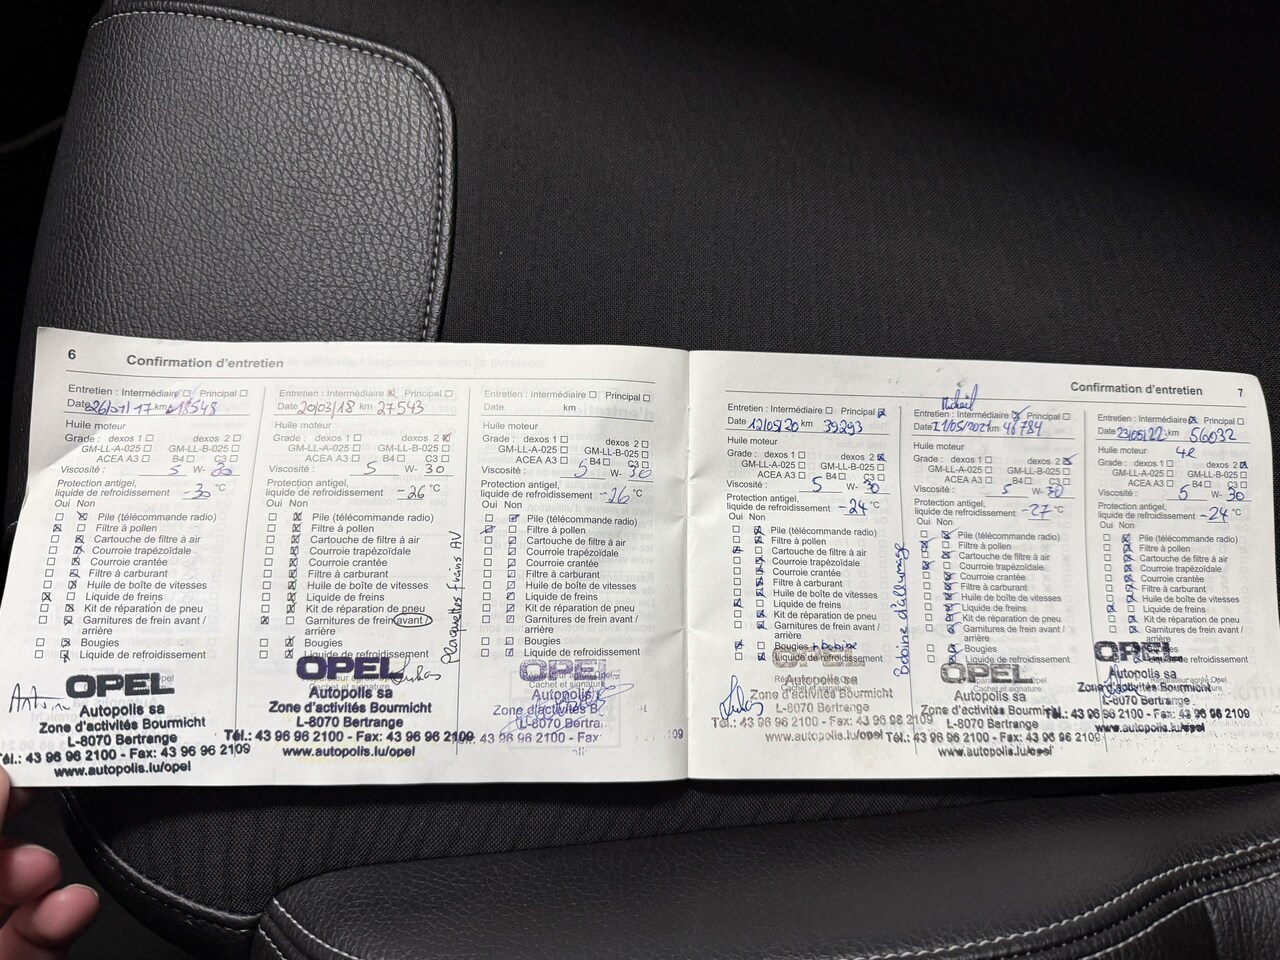 6
Confirmation d'entretien
Entretien : Intermédiaire Principal
Date 26/01/17 km 18548
Huile moteur
Grade : dexos 1 dexos 2
GM-LL-A-025 GM-LL-B-025
ACEA A3 B4 C3
Viscosité 5 W- 30
Protection antigel,
liquide de refroidissement -30 °C
Oui Non
Pile (télécommande radio)
Filtre à pollen
Cartouche de filtre à air
Courroie trapézoïdale
Courroie crantée
Filtre à carburant
Huile de boîte de vitesses
Liquide de freins
Kit de réparation de pneu
Garnitures de frein avant /
arrière
Bougies
Liquide de refroidissement
OPEL
Autopolis sa
Zone d'activités Bourmicht
L-8070 Bertrange
Tél.: 43 96 96 2100 - Fax: 43 96 96 2109
www.autopolis.lu/opel
Entretien : Intermédiaire Principal
Date 20/03/18 km 27543
Huile moteur
Grade : dexos 1 dexos 2
GM-LL-A-025 GM-LL-B-025
ACEA A3 B4 C3
Viscosité 5 W- 30
Protection antigel,
liquide de refroidissement -26 °C
Oui Non
Pile (télécommande radio)
Filtre à pollen
Cartouche de filtre à air
Courroie trapézoïdale
Courroie crantée
Filtre à carburant
Huile de boîte de vitesses
Liquide de freins
Kit de réparation de pneu
Garnitures de frein avant /
arrière
Bougies
Liquide de refroidissement
Plaquettes frains AV
OPEL
Cachet et signature
Autopolis sa
Zone d'activités Bourmicht
L-8070 Bertrange
Tél.: 43 96 96 2100 - Fax: 43 96 96 2109
www.autopolis.lu/opel
Entretien : Intermédiaire Principal
Date km
Huile moteur
Grade : dexos 1 dexos 2
GM-LL-A-025 GM-LL-B-025
ACEA A3 B4 C3
Viscosité 5 W- 30
Protection antigel,
liquide de refroidissement -26 °C
Oui Non
Pile (télécommande radio)
Filtre à pollen
Cartouche de filtre à air
Courroie trapézoïdale
Courroie crantée
Filtre à carburant
Huile de boîte de vitesses
Liquide de freins
Kit de réparation de pneu
Garnitures de frein avant /
arrière
Bougies
Liquide de refroidissement
OPEL
Cachet et signature
Autopolis
Zone d'activités B
L-8070 Bertra
43 96 96 2100 - Fax
Confirmation d'entretien
7
Entretien : Intermédiaire Principal
Date 12/05/20 km 39293
Huile moteur
Grade : dexos 1 dexos 2
GM-LL-A-025 GM-LL-B-025
ACEA A3 B4 C3
Viscosité 5 W- 30
Protection antigel,
liquide de refroidissement -24 °C
Oui Non
Pile (télécommande radio)
Filtre à pollen
Cartouche de filtre à air
Courroie trapézoïdale
Courroie crantée
Filtre à carburant
Huile de boîte de vitesses
Liquide de freins
Kit de réparation de pneu
Garnitures de frein avant /
arrière
Bougies + bobine
Liquide de refroidissement
Bobine d'allumage
OPEL
Autopolis sa
Zone d'activités Bourmicht
L-8070 Bertrange
Tél.: 43 96 96 2100 - Fax: 43 96 96 2109
www.autopolis.lu/opel
Entretien : Intermédiaire Principal
Date 21/05/2021 km 46784
Huile moteur
Grade : dexos 1 dexos 2
GM-LL-A-025 GM-LL-B-025
ACEA A3 B4 C3
Viscosité 5 W- 30
Protection antigel,
liquide de refroidissement -27 °C
Oui Non
Pile (télécommande radio)
Filtre à pollen
Cartouche de filtre à air
Courroie trapézoïdale
Courroie crantée
Filtre à carburant
Huile de boîte de vitesses
Liquide de freins
Kit de réparation de pneu
Garnitures de frein avant /
arrière
Bougies
Liquide de refroidissement
OPEL
Cachet et signature
Autopolis sa
Zone d'activités Bourmicht
L-8070 Bertrange
Tél.: 43 96 96 2100 - Fax: 43 96 96 2109
www.autopolis.lu/opel
Entretien : Intermédiaire Principal
Date 23/05/22 km 56032
Huile moteur 4l
Grade : dexos 1 dexos 2
GM-LL-A-025 GM-LL-B-025
ACEA A3 B4 C3
Viscosité 5 W- 30
Protection antigel,
liquide de refroidissement -24 °C
Oui Non
Pile (télécommande radio)
Filtre à pollen
Cartouche de filtre à air
Courroie trapézoïdale
Courroie crantée
Filtre à carburant
Huile de boîte de vitesses
Liquide de freins
Kit de réparation de pneu
Garnitures de frein avant /
arrière
Bougies
Liquide de refroidissement
OPEL
Réparateur agréé Opel
Cachet et signature
Autopolis sa
Zone d'activités Bourmicht
L-8070 Bertrange
Tél.: 43 96 96 2100 - Fax: 43 96 96 2109
www.autopolis.lu/opel